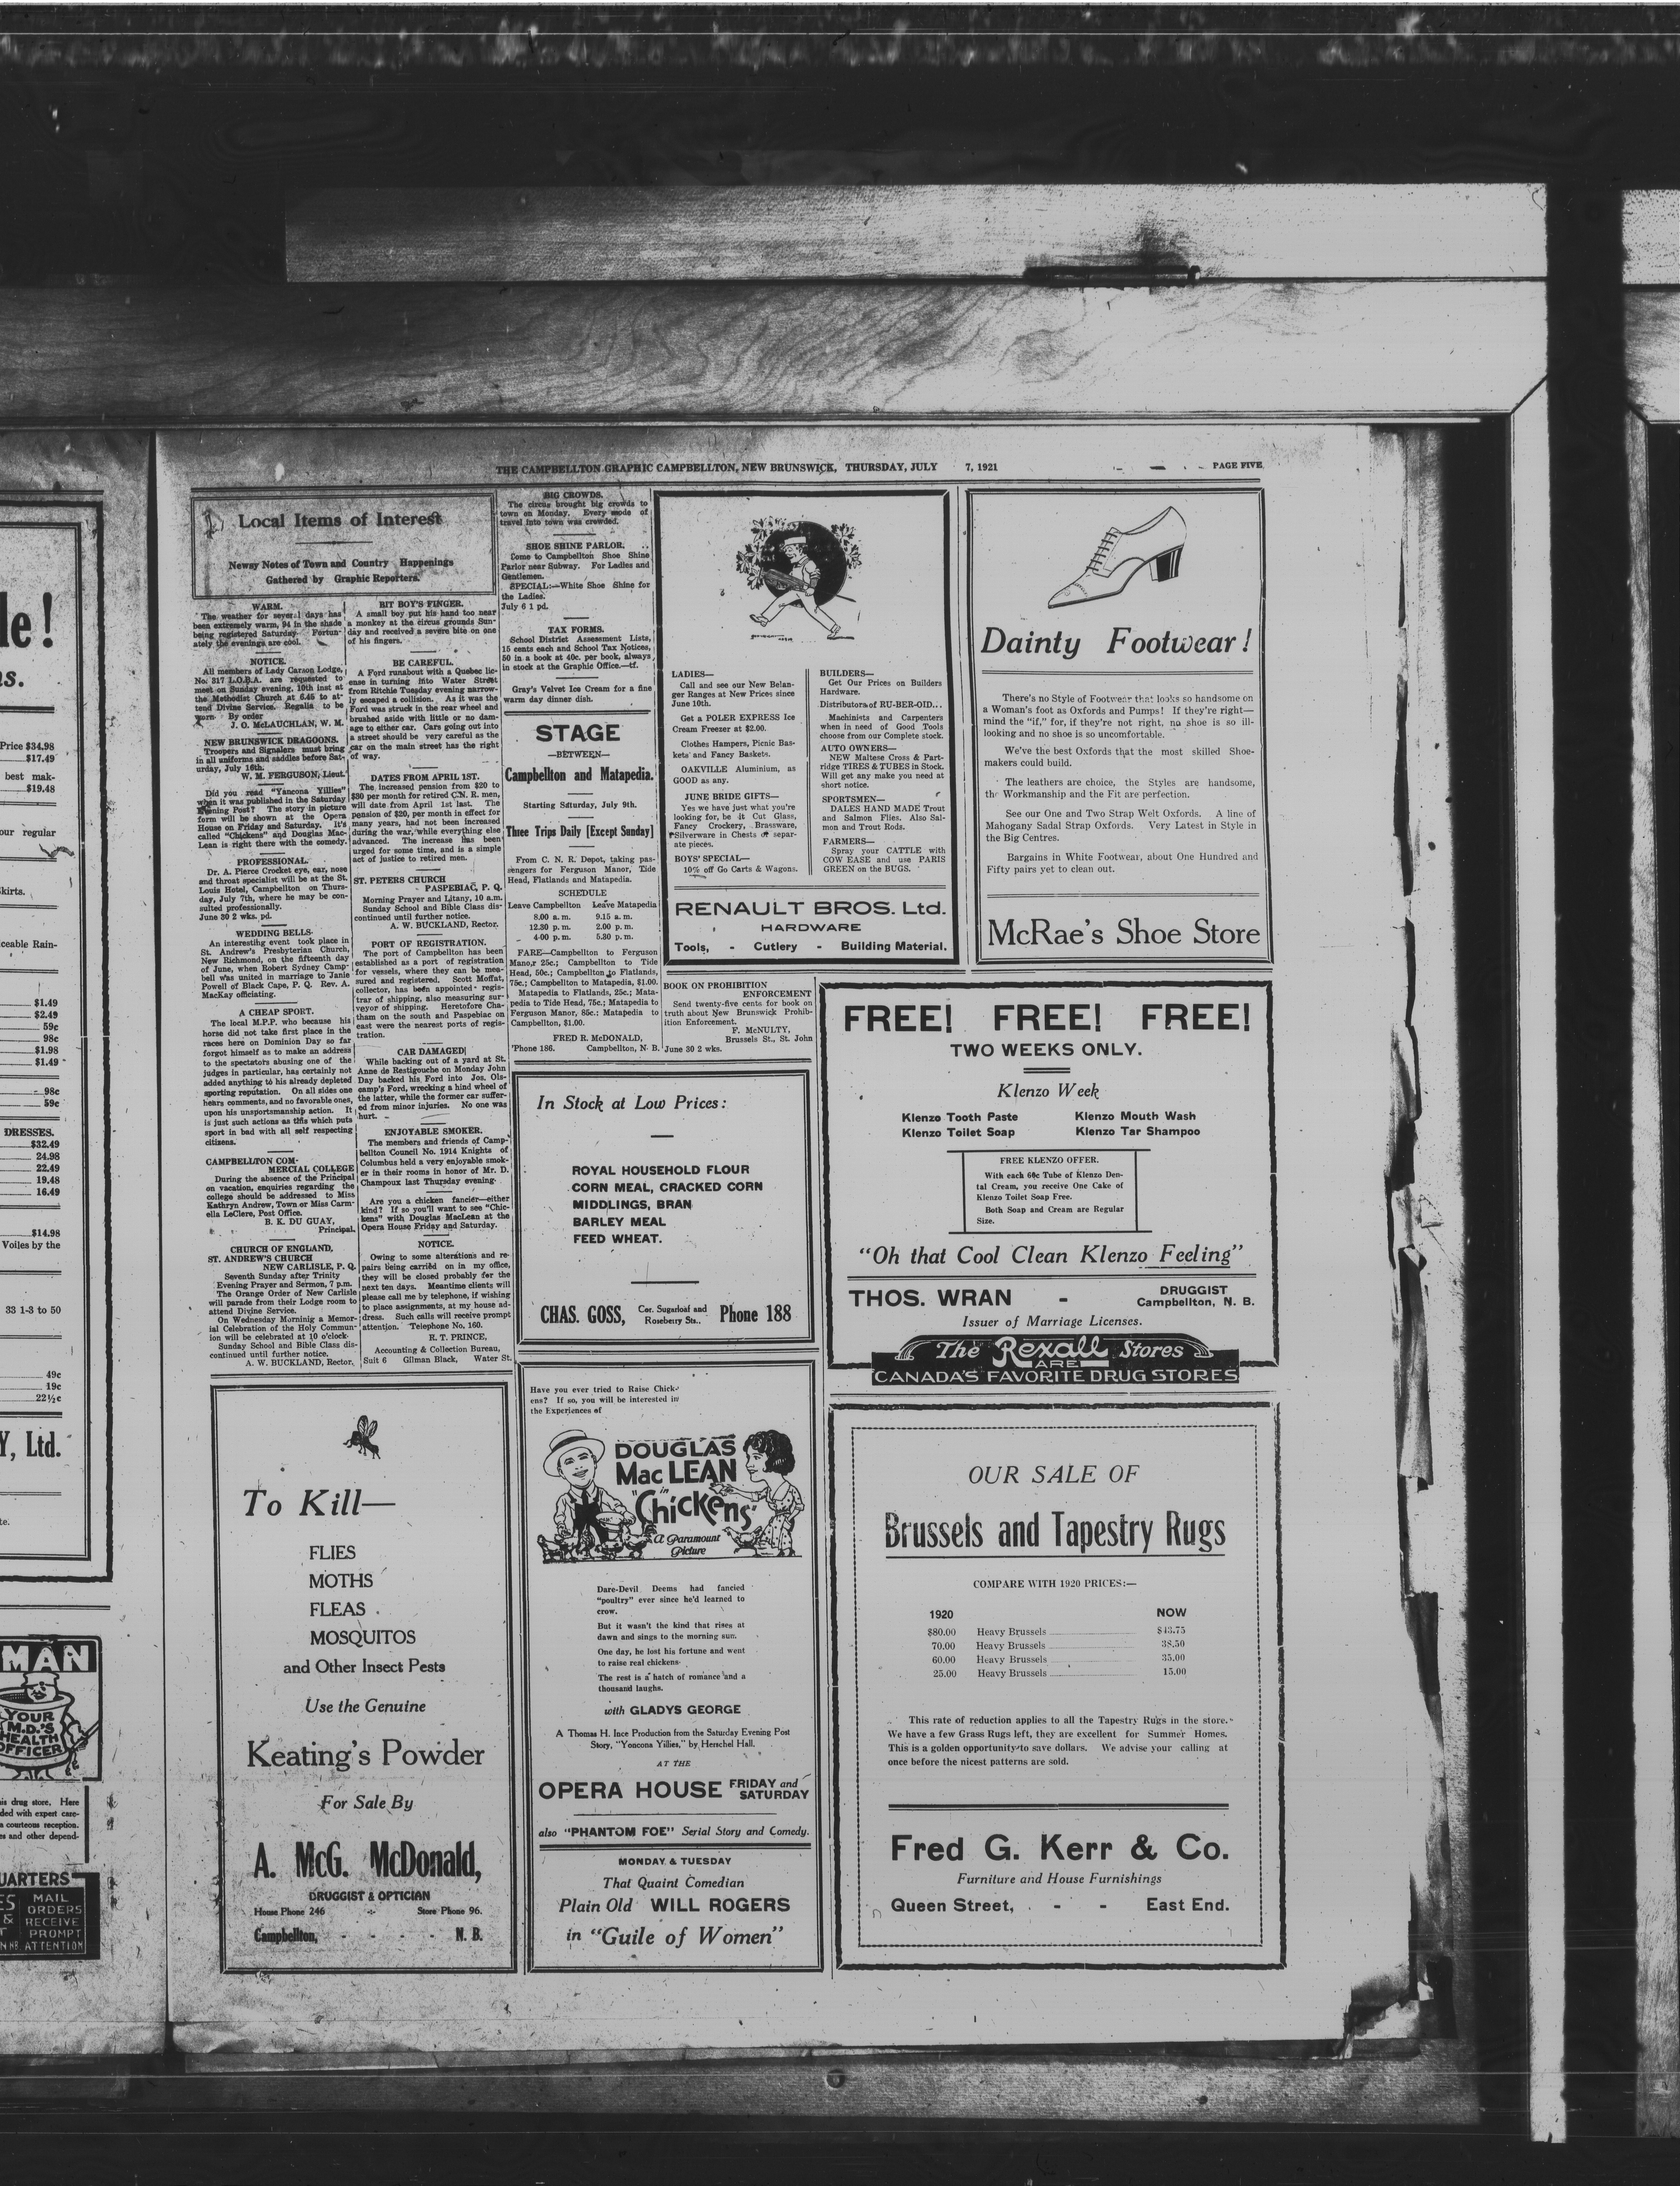 THE CAMPBELLTON GRAPHIC CAMPBELLTON, NEW BRUNSWICK, THURSDAY, JULY 7, 1921
PAGE FIVE
Local Items of Interest
Newsy Notes of Town and Country Happenings
Gathered by Graphic Reporters.
WARM.
The weather for several days has
been extremely warm, 94 in the shade
being registered Saturday. Fortun-
ately the evenings are cool.
NOTICE.
All members of Lady Carson Lodge,
No. 317 L.O.B.A. are requested to
meet on Sunday evening, 10th inst at
the Methodist Church at 6.45 to at-
tend Divine Service. Regalia to be
worn. By order
J. O. McLAUCHLAN, W. M.
NEW BRUNSWICK DRAGOONS.
Troopers and Signalers must bring
in all uniforms and saddles before Sat-
urday, July 16th.
W. M. FERGUSON, Lieut.
Did you read "Yancona Yillies"
when it was published in the Saturday
Evening Post? The story in picture
form will be shown at the Opera
House on Friday and Saturday. It's
called "Chickens" and Douglas Mac-
Lean is right there with the comedy.
PROFESSIONAL.
Dr. A. Pierce Crocket eye, ear, nose
and throat specialist will be at the St.
Louis Hotel, Campbellton on Thurs-
day, July 7th, where he may be con-
sulted professionally.
June 30 2 wks. pd.
WEDDING BELLS.
An interesting event took place in
St. Andrew's Presbyterian Church,
New Richmond, on the fifteenth day
of June, when Robert Sydney Camp-
bell was united in marriage to Janie
Powell of Black Cape, P. Q. Rev. A.
MacKay officiating.
A CHEAP SPORT.
The local M.P.P. who because his
horse did not take first place in the
races here on Dominion Day so far
forgot himself as to make an address
to the spectators abusing one of the
judges in particular, has certainly not
added anything to his already depleted
sporting reputation. On all sides one
hears comments, and no favorable ones,
upon his unsportsmanship action. It
is just such actions as this which puts
sport in bad with all self respecting
citizens.
CAMPBELLTON COM-
MERCIAL COLLEGE
During the absence of the Principal
on vacation, enquiries regarding the
college should be addressed to Miss
Kathryn Andrew, Town or Miss Carm-
ella LeClere, Post Office.
B. K. DU GUAY,
Principal.
CHURCH OF ENGLAND,
ST. ANDREW'S CHURCH
NEW CARLISLE, P. Q.
Seventh Sunday after Trinity
Evening Prayer and Sermon, 7 p.m.
The Orange Order of New Carlisle
will parade from their Lodge room to
attend Divine Service.
On Wednesday Morninig a Memor-
ial Celebration of the Holy Commun-
ion will be celebrated at 10 o'clock.
Sunday School and Bible Class dis-
continued until further notice.
A. W. BUCKLAND, Rector.
BIT BOY'S FINGER.
A small boy put his hand too near
a monkey at the circus grounds Sun-
day and received a severe bite on one
of his fingers.
BE CAREFUL.
A Ford runabout with a Quebec lic-
ense in turning into Water Street
from Ritchie Tuesday evening narrow-
ly escaped a collision. As it was the
Ford was struck in the rear wheel and
brushed aside with little or no dam-
age to either car. Cars going out into
a street should be very careful as the
car on the main street has the right
of way.
DATES FROM APRIL 1ST.
The increased pension from $20 to
$30 per month for retired C.N. R. men,
will date from April 1st last. The
pension of $20, per month in effect for
many years, had not been increased
during the war, while everything else
advanced. The increase has been
urged for some time, and is a simple
act of justice to retired men.
ST. PETERS CHURCH
PASPEBIAC, P. Q.
Morning Prayer and Litany, 10 a.m.
Sunday School and Bible Class dis-
continued until further notice.
A. W. BUCKLAND, Rector.
PORT OF REGISTRATION.
The port of Campbellton has been
established as a port of registration
for vessels, where they can be mea-
sured and registered. Scott Moffat,
collector, has been appointed regis-
trar of shipping, also measuring sur-
veyor of shipping. Heretofore Cha-
tham on the south and Paspebiac on
east were the nearest ports of regis-
tration.
CAR DAMAGED
While backing out of a yard at St.
Anne de Restigouche on Monday John
Day backed his Ford into Jos. Ols-
camp's Ford, wrecking a hind wheel of
the latter, while the former car suffer-
ed from minor injuries. No one was
hurt.
ENJOYABLE SMOKER.
The members and friends of Camp-
bellton Council No. 1914 Knights of
Columbus held a very enjoyable smok-
er in their rooms in honor of Mr. D.
Champoux last Thursday evening.
Are you a chicken fancier—either
kind? If so you'll want to see "Chic-
kens" with Douglas MacLean at the
Opera House Friday and Saturday.
NOTICE.
Owing to some alterations and re-
pairs being carried on in my office,
they will be closed probably for the
next ten days. Meantime clients will
please call me by telephone, if wishing
to place assignments, at my house ad-
dress. Such calls will receive prompt
attention. Telephone No. 160.
R. T. PRINCE,
Accounting & Collection Bureau,
Suit 6 Gilman Black, Water St.
BIG CROWDS.
The circus brought big crowds to
town on Monday. Every mode of
travel into town was crowded.
SHOE SHINE PARLOR.
Come to Campbellton Shoe Shine
Parlor near Subway. For Ladies and
Gentlemen.
SPECIAL:—White Shoe Shine for
the Ladies.
July 6 1 pd.
TAX FORMS.
School District Assessment Lists,
15 cents each and School Tax Notices,
50 in a book at 40c. per book, always
in stock at the Graphic Office.—tf.
Gray's Velvet Ice Cream for a fine
warm day dinner dish.
STAGE
—BETWEEN—
Campbellton and Matapedia.
Starting Saturday, July 9th.
Three Trips Daily [Except Sunday]
From C. N. R. Depot, taking pas-
sengers for Ferguson Manor, Tide
Head, Flatlands and Matapedia.
SCHEDULE
Leave Campbellton Leave Matapedia
8.00 a. m. 9.15 a. m.
12.30 p. m. 2.00 p. m.
4.00 p. m. 5.30 p. m.
FARE—Campbellton to Ferguson
Manor 25c.; Campbellton to Tide
Head, 50c.; Campbellton to Flatlands,
75c.; Campbellton to Matapedia, $1.00.
Matapedia to Flatlands, 25c.; Mata-
pedia to Tide Head, 75c.; Matapedia to
Ferguson Manor, 85c.; Matapedia to
Campbellton, $1.00.
FRED R. McDONALD,
'Phone 186. Campbellton, N. B.
LADIES—
Call and see our New Belan-
ger Ranges at New Prices since
June 10th.
Get a POLER EXPRESS Ice
Cream Freezer at $2.00.
Clothes Hampers, Picnic Bas-
kets and Fancy Baskets.
OAKVILLE Aluminium, as
GOOD as any.
JUNE BRIDE GIFTS—
Yes we have just what you're
looking for, be it Cut Glass,
Fancy Crockery, Brassware,
Silverware in Chests of separ-
ate pieces.
BOYS' SPECIAL—
10% off Go Carts & Wagons.
BUILDERS—
Get Our Prices on Builders
Hardware.
Distributors of RU-BER-OID...
Machinists and Carpenters
when in need of Good Tools
choose from our Complete stock.
AUTO OWNERS—
NEW Maltese Cross & Part-
ridge TIRES & TUBES in Stock.
Will get any make you need at
short notice.
SPORTSMEN—
DALES HAND MADE Trout
and Salmon Flies. Also Sal-
mon and Trout Rods.
FARMERS—
Spray your CATTLE with
COW EASE and use PARIS
GREEN on the BUGS.
RENAULT BROS. Ltd.
HARDWARE
Tools, - Cutlery - Building Material.
BOOK ON PROHIBITION
ENFORCEMENT
Send twenty-five cents for book on
truth about New Brunswick Prohib-
ition Enforcement.
F. McNULTY,
Brussels St., St. John
June 30 2 wks.
Dainty Footwear!
There's no Style of Footwear that looks so handsome on
a Woman's foot as Oxfords and Pumps! If they're right—
mind the "if," for, if they're not right, no shoe is so ill-
looking and no shoe is so uncomfortable.
We've the best Oxfords that the most skilled Shoe-
makers could build.
The leathers are choice, the Styles are handsome,
the Workmanship and the Fit are perfection.
See our One and Two Strap Welt Oxfords. A line of
Mahogany Sadal Strap Oxfords. Very Latest in Style in
the Big Centres.
Bargains in White Footwear, about One Hundred and
Fifty pairs yet to clean out.
McRae's Shoe Store
In Stock at Low Prices:
ROYAL HOUSEHOLD FLOUR
CORN MEAL, CRACKED CORN
MIDDLINGS, BRAN
BARLEY MEAL
FEED WHEAT.
CHAS. GOSS, Cor. Sugarloaf and Roseberry Sts., Phone 188
FREE! FREE! FREE!
TWO WEEKS ONLY.
Klenzo Week
Klenzo Tooth Paste Klenzo Mouth Wash
Klenzo Toilet Soap Klenzo Tar Shampoo
FREE KLENZO OFFER.
With each 60c Tube of Klenzo Den-
tal Cream, you receive One Cake of
Klenzo Toilet Soap Free.
Both Soap and Cream are Regular
Size.
"Oh that Cool Clean Klenzo Feeling"
THOS. WRAN - DRUGGIST
Campbellton, N. B.
Issuer of Marriage Licenses.
The Rexall Stores
ARE
CANADA'S FAVORITE DRUG STORES
To Kill—
FLIES
MOTHS
FLEAS
MOSQUITOS
and Other Insect Pests
Use the Genuine
Keating's Powder
For Sale By
A. McG. McDonald,
DRUGGIST & OPTICIAN
House Phone 246 Store Phone 96.
Campbellton, - - - - N. B.
Have you ever tried to Raise Chick-
ens? If so, you will be interested in
the Experiences of
DOUGLAS
MacLEAN
in
"Chickens"
A Paramount
Picture
Dare-Devil Deems had fancied
"poultry" ever since he'd learned to
crow.
But it wasn't the kind that rises at
dawn and sings to the morning sun.
One day, he lost his fortune and went
to raise real chickens.
The rest is a hatch of romance and a
thousand laughs.
with GLADYS GEORGE
A Thomas H. Ince Production from the Saturday Evening Post
Story, "Yoncona Yillies," by Herschel Hall.
AT THE
OPERA HOUSE FRIDAY and SATURDAY
also "PHANTOM FOE" Serial Story and Comedy.
MONDAY & TUESDAY
That Quaint Comedian
Plain Old WILL ROGERS
in "Guile of Women"
OUR SALE OF
Brussels and Tapestry Rugs
COMPARE WITH 1920 PRICES:—
1920 NOW
$80.00 Heavy Brussels $43.75
70.00 Heavy Brussels 38.50
60.00 Heavy Brussels 35.00
25.00 Heavy Brussels 15.00
This rate of reduction applies to all the Tapestry Rugs in the store.
We have a few Grass Rugs left, they are excellent for Summer Homes.
This is a golden opportunity to save dollars. We advise your calling at
once before the nicest patterns are sold.
Fred G. Kerr & Co.
Furniture and House Furnishings
Queen Street, - - East End.
le!
s.
Price $34.98
$17.49
best mak-
$19.48
our regular
kirts.
ceable Rain-
$1.49
$2.49
59c
98c
$1.98
$1.49
98c
59c
DRESSES.
$32.49
24.98
22.49
19.48
16.49
$14.98
Voiles by the
33 1-3 to 50
49c
19c
22½c
Y, Ltd.
te.
MAN
YOUR
M.D.'S
HEALTH
OFFICER
is drug store. Here
ded with expert care-
a courteous reception.
es and other depend-
UARTERS
MAIL
ORDERS
RECEIVE
PROMPT
ATTENTION